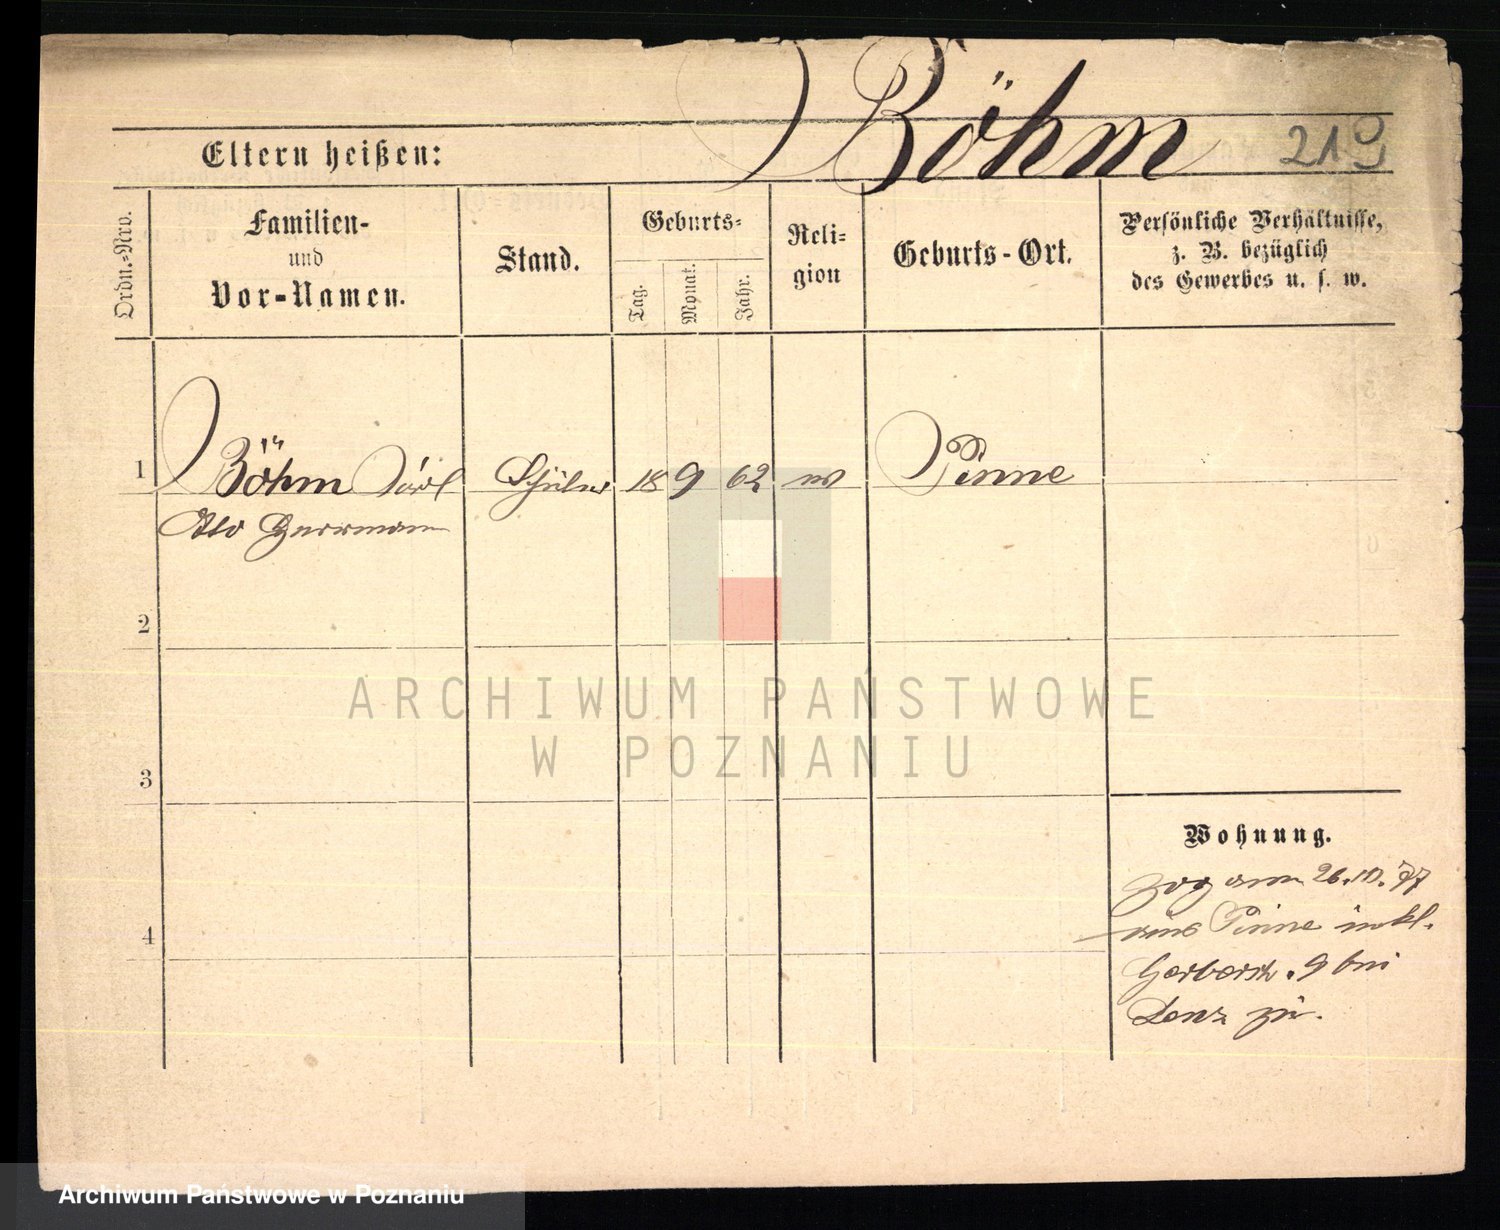 Böhm
219
Eltern heißen:
Ordn.-Nro.
Familien-
und
Vor-Namen.
Stand.
Geburts-
Tag.
Monat.
Jahr.
Reli-
gion
Geburts-Ort.
Persönliche Verhältnisse,
z. B. bezüglich
des Gewerbes u. s. w.
1
Böhm
Otto Herrmann
Schüler
18
9
62
Pinne
2
3
4
ARCHIWUM PAŃSTWOWE
W POZNANIU
Wohnung.
Zog am 26.10. 77
aus Pinne inkl.
Gerberstr. 9 bei
Lenz zu.
Archiwum Państwowe w Poznaniu